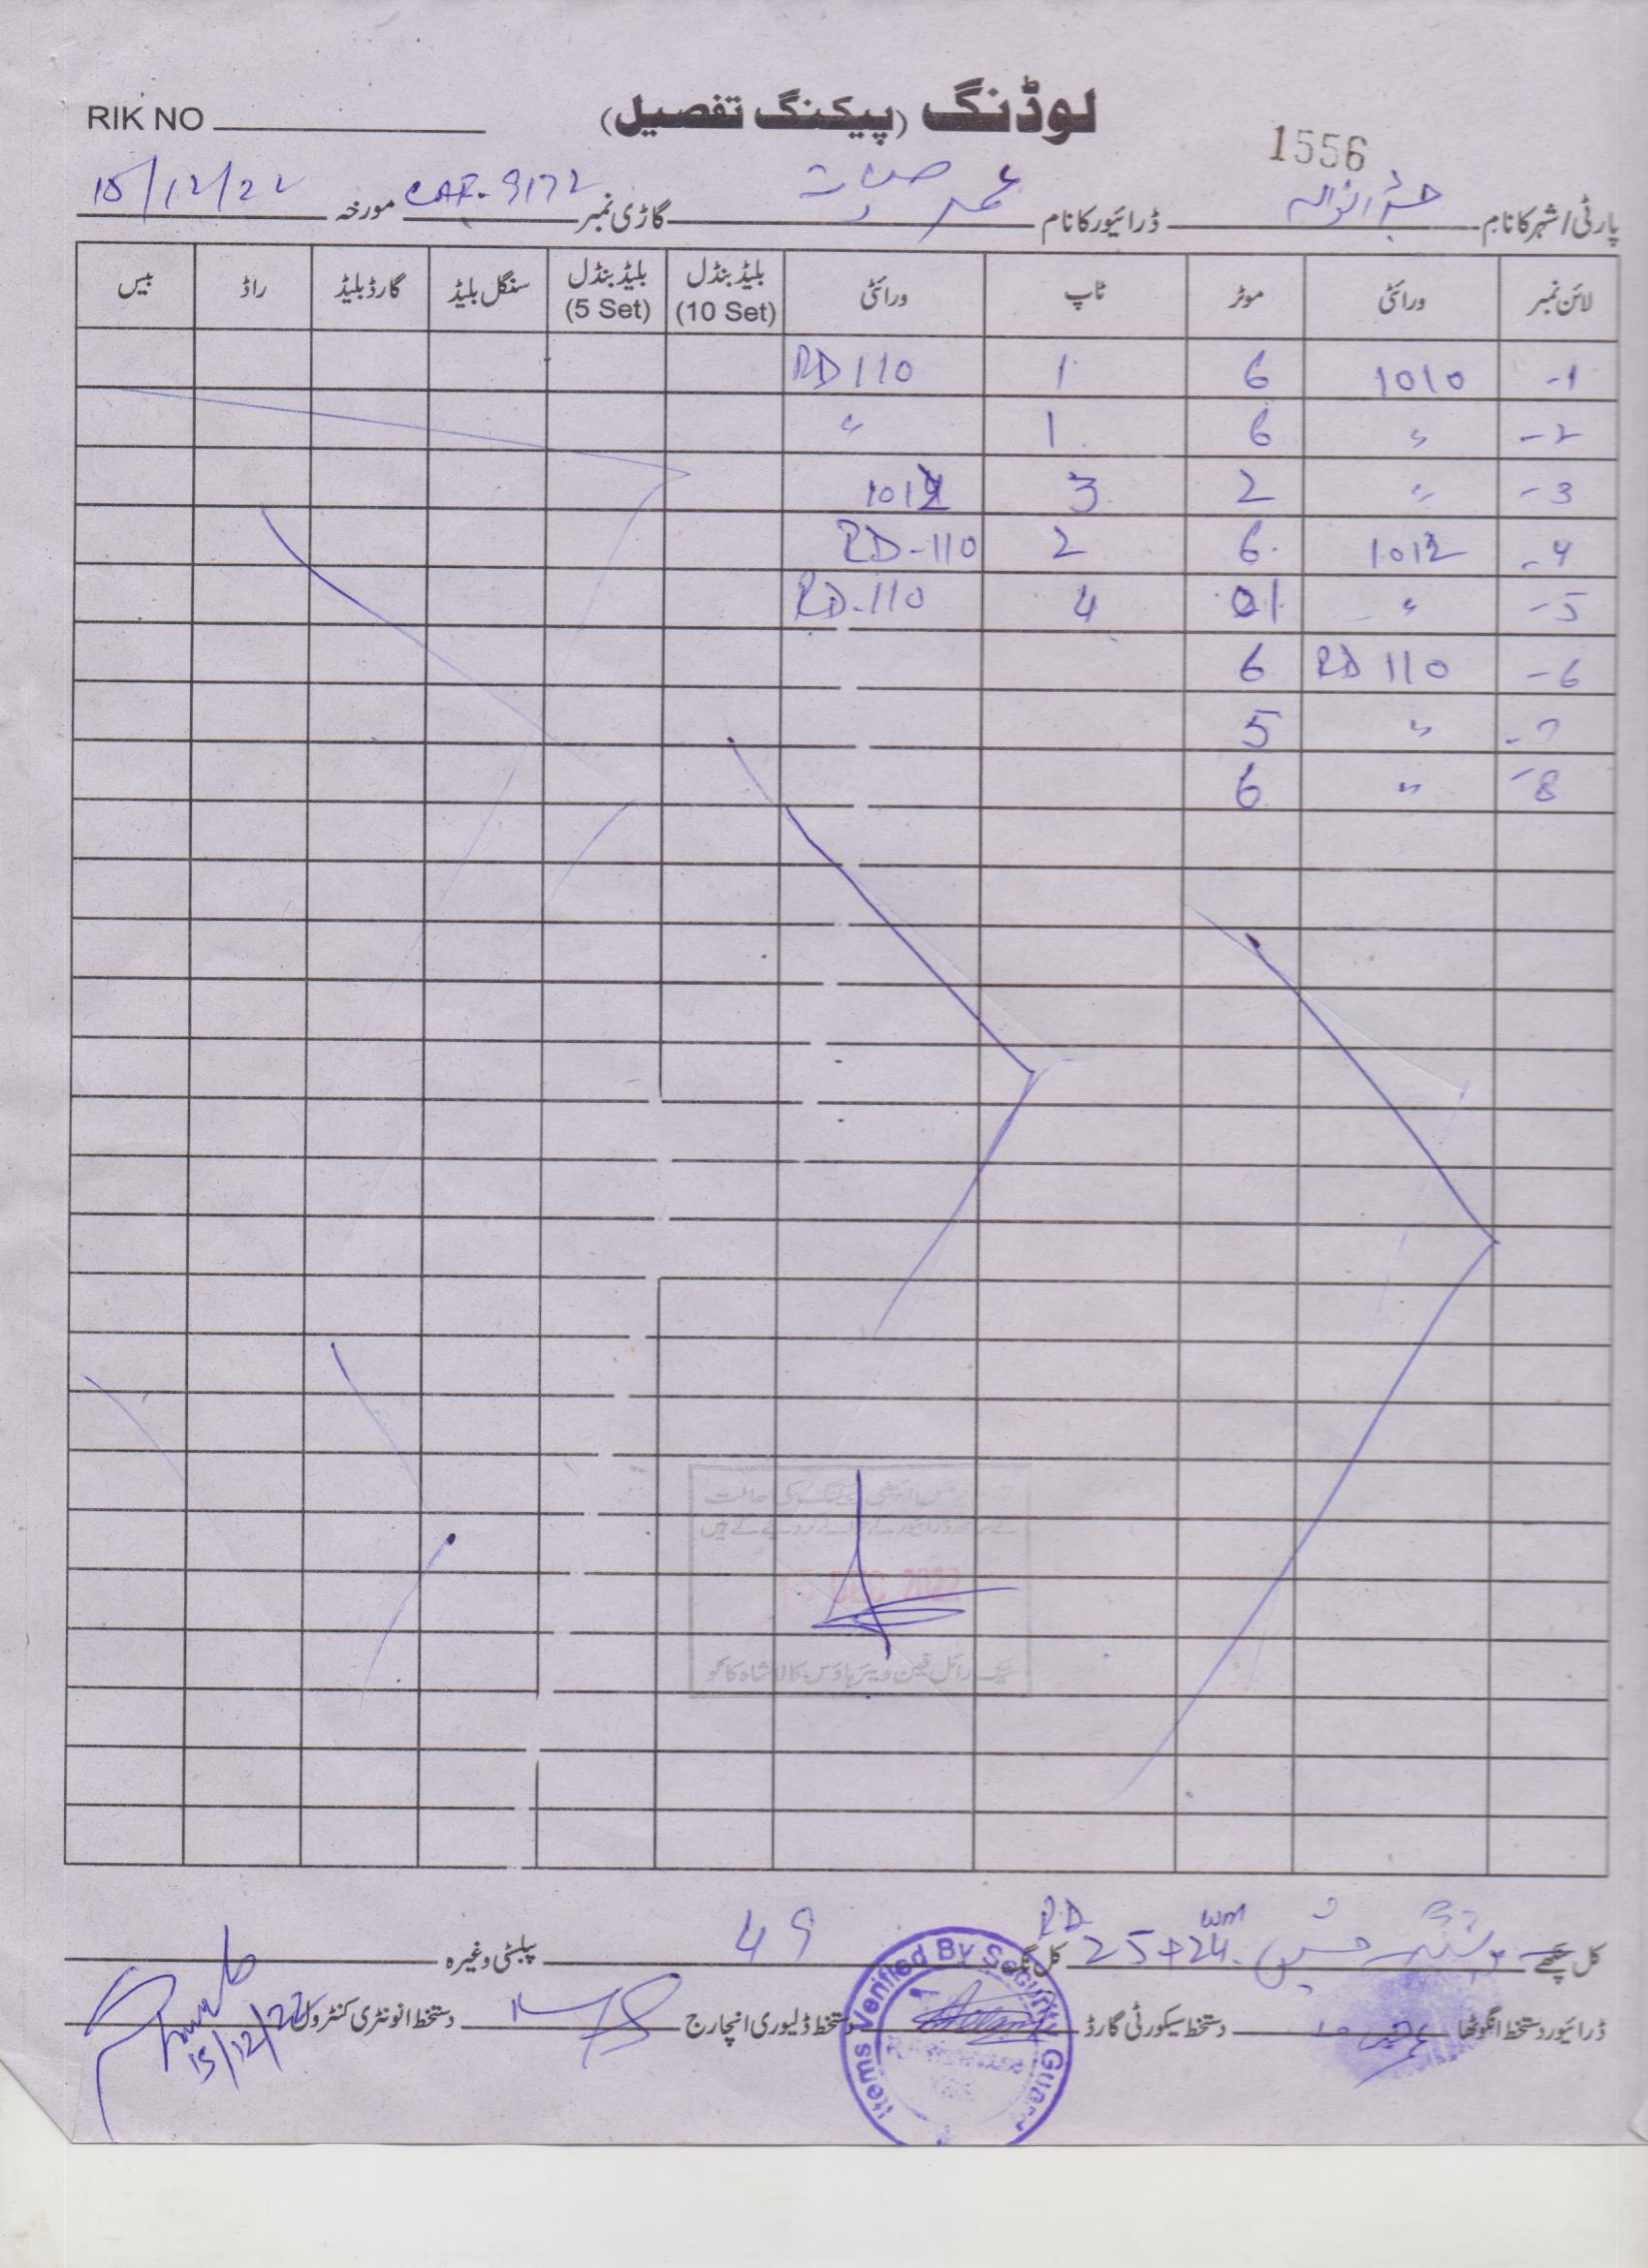 RIK NO
لوڈنگ (پیکنگ تفصیل)
1556
پارٹی/شہر کا نام جڑانوالہ ڈرائیور کا نام عمر حیات گاڑی نمبر CAF-9172 مورخہ 15/12/22
لائن نمبر ورائٹی موٹر ٹاپ ورائٹی بلیڈ بنڈل (10 Set) بلیڈ بنڈل (5 Set) سنگل بلیڈ گارڈ بلیڈ راڈ بیس
-1 1010 6 1 RD 110
-2 〃 6 1 〃
-3 〃 2 3 1012
-4 1012 6 2 RD-110
-5 〃 01 4 RD-110
-6 RD 110 6
-7 〃 5
-8 〃 6
DEC 2022
کل پنکھے RD WM 25+24 کل نگ 49 پبلسٹی وغیرہ
ڈرائیور دستخط انگوٹھا دستخط سیکورٹی گارڈ دستخط ڈلیوری انچارج دستخط انونٹری کنٹرول
15/12/22
Items Verified By Security Guard